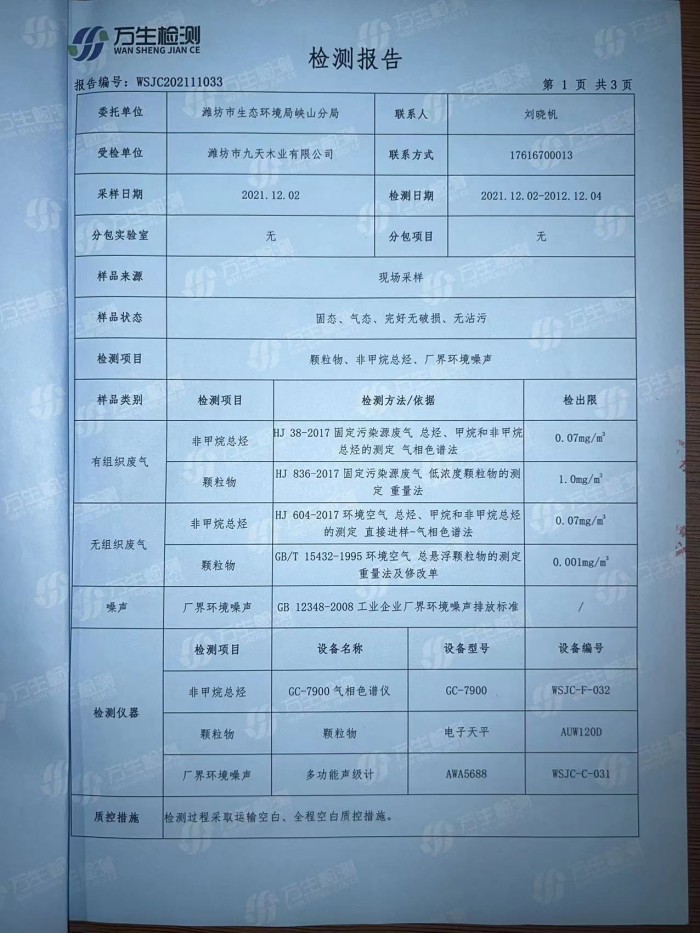 万生检测
WAN SHENG JIAN CE
检测报告
报告编号：WSJC202111033
第 1 页 共 3 页
委托单位 潍坊市生态环境局峡山分局 联系人 刘晓帆
受检单位 潍坊市九天木业有限公司 联系方式 17616700013
采样日期 2021.12.02 检测日期 2021.12.02-2012.12.04
分包实验室 无 分包项目 无
样品来源 现场采样
样品状态 固态、气态、完好无破损、无沾污
检测项目 颗粒物、非甲烷总烃、厂界环境噪声
样品类别 检测项目 检测方法/依据 检出限
有组织废气
非甲烷总烃 HJ 38-2017 固定污染源废气 总烃、甲烷和非甲烷
总烃的测定 气相色谱法 0.07mg/m³
颗粒物 HJ 836-2017 固定污染源废气 低浓度颗粒物的测
定 重量法 1.0mg/m³
无组织废气
非甲烷总烃 HJ 604-2017 环境空气 总烃、甲烷和非甲烷总烃
的测定 直接进样-气相色谱法 0.07mg/m³
颗粒物 GB/T 15432-1995 环境空气 总悬浮颗粒物的测定
重量法及修改单 0.001mg/m³
噪声 厂界环境噪声 GB 12348-2008 工业企业厂界环境噪声排放标准 /
检测仪器
检测项目 设备名称 设备型号 设备编号
非甲烷总烃 GC-7900 气相色谱仪 GC-7900 WSJC-F-032
颗粒物 颗粒物 电子天平 AUW120D
厂界环境噪声 多功能声级计 AWA5688 WSJC-C-031
质控措施 检测过程采取运输空白、全程空白质控措施。